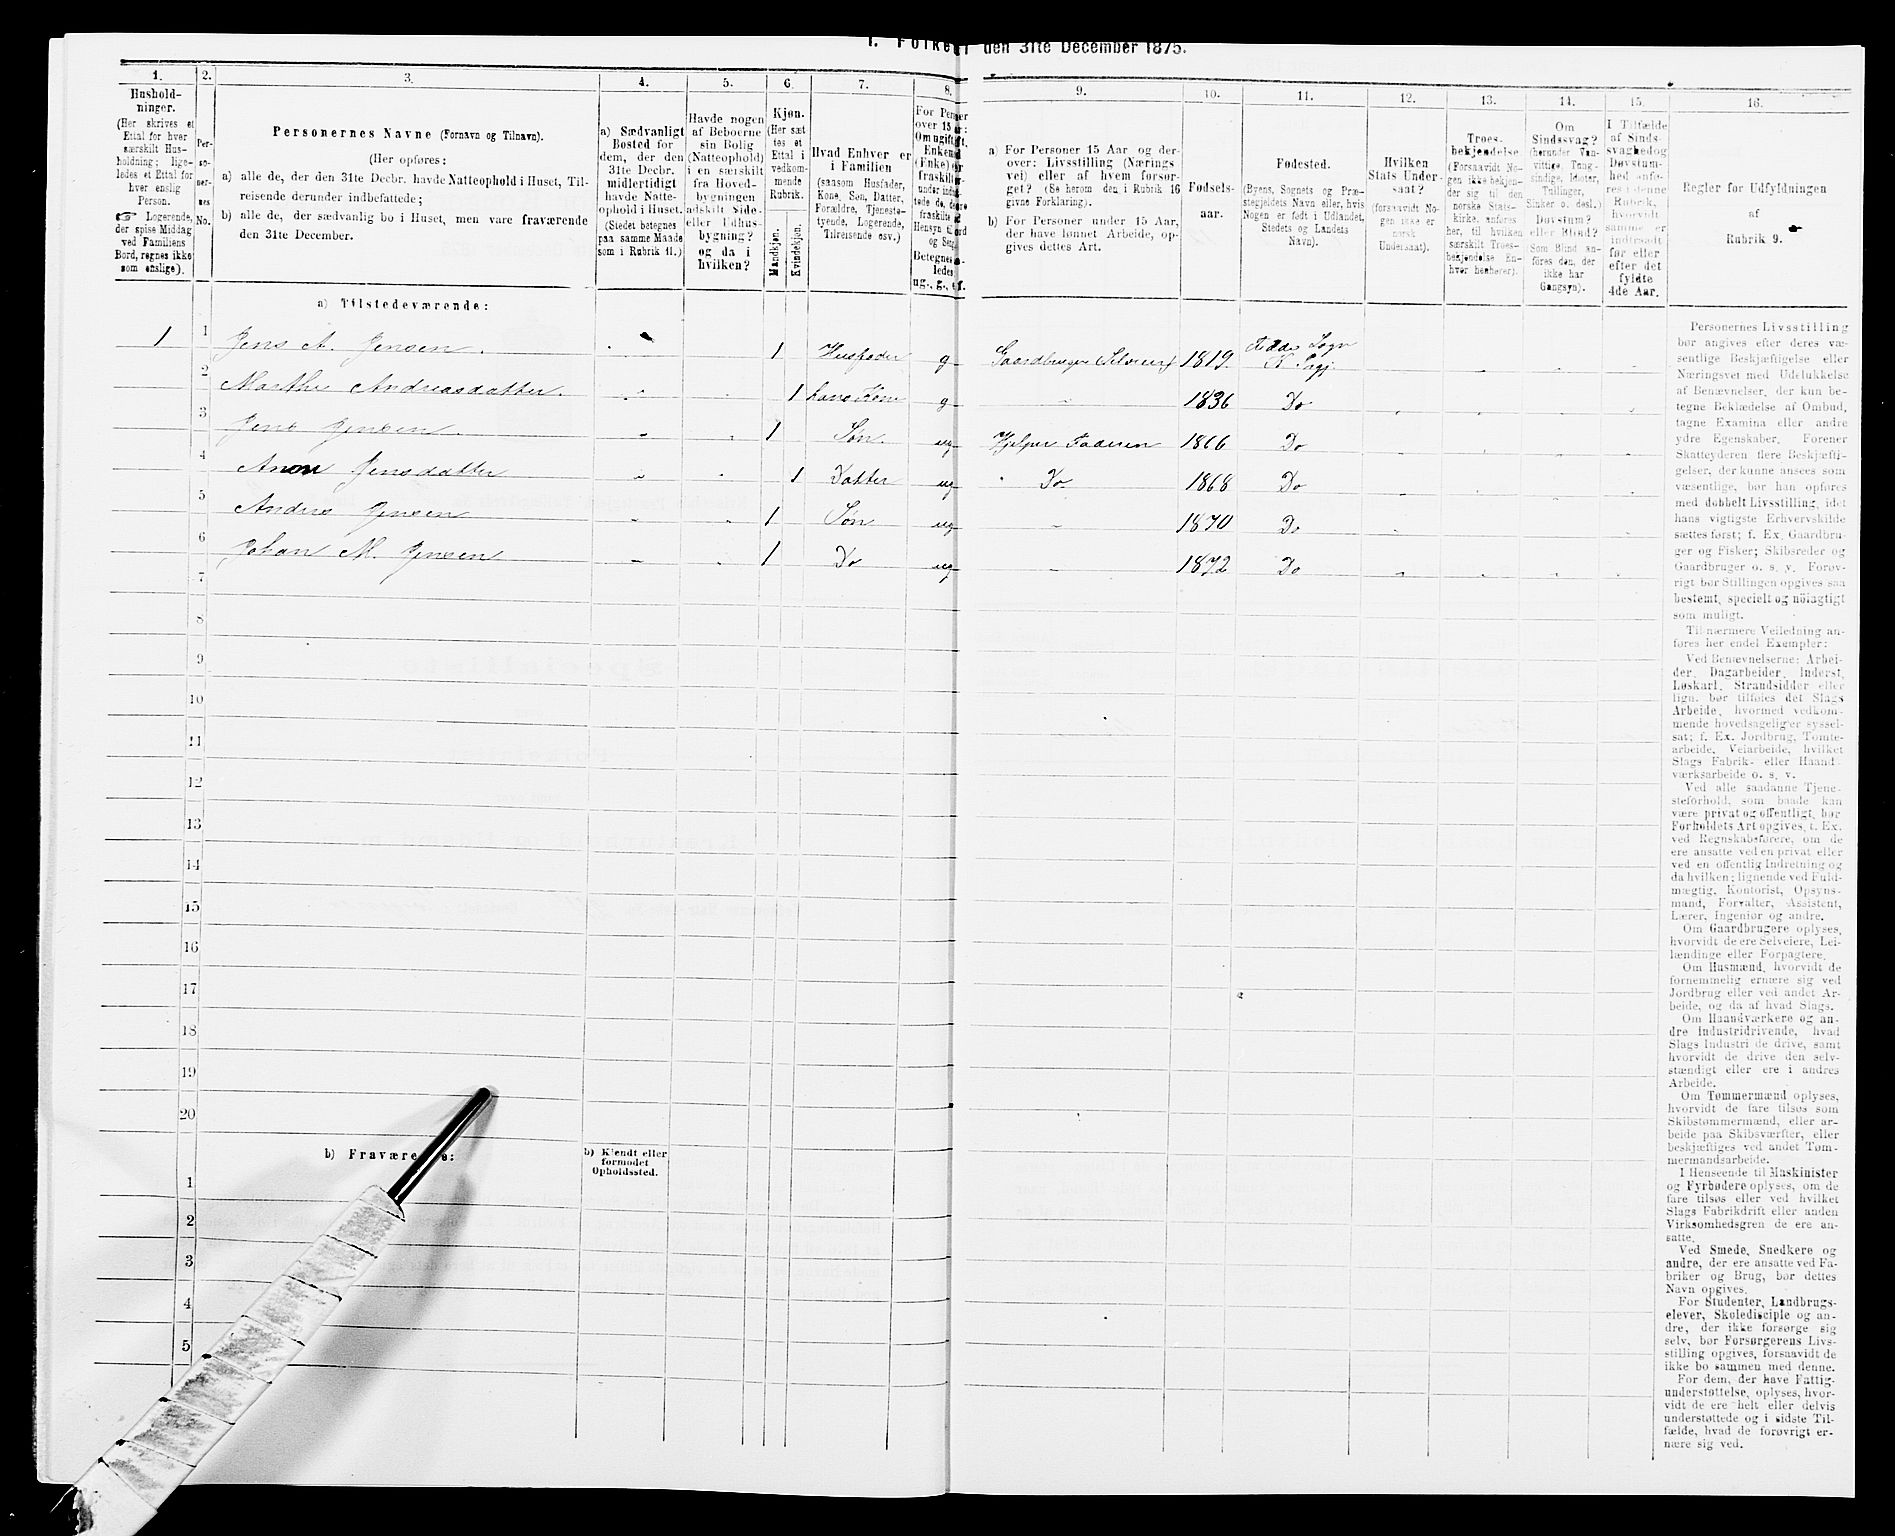 1. Folket den 31te December 1875.
1.
Hushold-
ninger.
(Her skrives et
Ettal for hver
særskilt Hus-
holdning; lige-
ledes et Ettal for
hver enslig
Person.
☞ Logerende,
der spise Middag
ved Familiens
Bord, regnes ikke
som enslige).
2.
Per-
so-
ner-
nes
No.
3.
Personernes Navne (Fornavn og Tilnavn).
(Her opføres:
a) alle de, der den 31te Decbr. havde Natteophold i Huset, Til-
reisende derunder indbefattede;
b) alle de, der sædvanlig bo i Huset, men vare fraværende
den 31te December.
4.
a) Sædvanligt
Bosted for
dem, der den
31te Decbr.
midlertidigt
havde Natte-
ophold i Huset.
(Stedet betegnes
paa samme Maade
som i Rubrik 11.)
5.
Havde nogen
af Beboerne
sin Bolig
(Natteophold)
i en særskilt
fra Hoved-
bygningen
adskilt Side-
eller Udhus-
bygning?
og da i
hvilken?
6.
Kjøn.
(Her sæt-
tes et
Ettal i
vedkom-
mende
Rubrik.
Mandkjøn.
Kvindekjøn.
7.
Hvad Enhver er
i Familien
(saasom Husfader,
Kone, Søn, Datter,
Forældre, Tjeneste-
tyende, Logerende,
Tilreisende osv.)
8.
9.
a) For Personer 15 Aar og der-
over: Livsstilling (Nærings-
vei) eller af hvem forsør-
get? (Se herom den i Rubrik 16
givne Forklaring).
b) For Personer under 15 Aar,
der have lønnet Arbeide, op-
gives dettes Art.
10.
Fødsels-
aar.
11.
Fødested.
(Byens, Sognets og Præ-
stegjeldets Navn eller, hvis
Nogen er født i Udlandet,
Stedets og Landets
Navn).
12.
Hvilken
Stats Under-
saat?
(forsaavidt No-
gen ikke er
norsk
Undersaat).
13.
Troes-
bekjendelse.
(Forsaavidt No-
gen ikke bekjen-
der sig til den
norske Stats-
kirke, anføres
her, til hvilken
særskilt Troes-
bekjendelse En-
hver henhører).
14.
Om
Sindssvag?
(herunder Van-
vittige, Tung-
sindige, Idioter,
Tullinger,
Sinker o. desl.)
Døvstum?
eller Blind?
(Som Blind an-
føres den, der
ikke har
Gangsyn).
15.
I Tilfælde
af Sinds-
svaghed og
Døvstum-
hed anfø-
res i denne
Rubrik,
hvorvidt
samme er
indtraadt
før eller
efter det
fyldte
4de Aar.
16.
Regler for Udfyldningen
af
Rubrik 9.
a) Tilstedeværende:
1 1 Jens A. Jensen. 1 Husfader g Gaardbruger Selveier 1819. Sogn
2 Marthe Andreasdatter. 1 hans Kone g 1836 Do
3 Jens Jensen. 1 Søn. ug Hjelper Faderen 1866 Do
4 Jensdatter 1 Datter ug Do 1868 Do
5 Andreas Jensen 1 Søn ug 1870 Do
6 Johan M. Jensen 1 Do ug 1872 Do
7
8
9
10
11
12
13
14
15
16
17
18
19
20
b) Fraværende:
b) Kjendt eller
formodet
Opholdssted.
1
2
3
4
5
Personernes Livsstilling
bør angives efter deres væ-
sentlige Beskjæftigelse eller
Næringsvei med Udelukkelse
af Benævnelser, der kun be-
tegne Beklædelse af Ombud,
tagne Examina eller andre
ydre Egenskaber. Forener
Skatteyderen flere Beskjæfti-
gelser, der kunne ansees som
væsentlige, bør han opføres
med dobbelt Livsstilling, idet
hans vigtigste Erhvervskilde
sættes først; f. Ex. Gaardbru-
ger og Fisker; Skibsreder og
Gaardbruger o. s. v. Forøv-
rigt bør Stillingen opgives saa
bestemt, specielt og nøiagtigt
som muligt.
Til nærmere Veiledning an-
føres her endel Exempler:
Ved Benævnelserne: Arbei-
der, Dagarbeider, Inderst,
Løskarl, Strandsidder eller
lign. bør tilføies det Slags
Arbeide, hvormed vedkom-
mende hovedsagelig er syssel-
sat; f. Ex. Jordbrug, Tomte-
arbeide, Veiarbeide, hvilket
Slags Fabrik- eller Haand-
værksarbeide o. s. v.
Ved alle saadanne Tjene-
steforhold, som baade kan
være privat og offentligt, bør
Forholdets Art opgives, t. Ex.
ved Regnskabsførere, om de
ere ansatte ved en privat eller
ved en offentlig Indretning og
da hvilken; lignende ved Fuld-
mægtig, Kontorist, Opsyns-
mand, Forvalter, Assistent,
Lærer, Ingeniør og andre.
Om Gaardbrugere oplyses,
hvorvidt de ere Selveiere, Lei-
lændinge eller Forpagtere.
Om Husmænd, hvorvidt de
fornemmelig ernære sig ved
Jordbrug eller ved andet Ar-
beide, og da af hvad Slags.
Om Haandværkere og an-
dre Industridrivende, hvad
Slags Industri de drive, samt
hvorvidt de drive den selv-
stændigt eller ere i andres
Arbeide.
Om Tømmermænd oplyses,
hvorvidt de fare tilsøs som
Skibstømmermænd, eller ar-
beide paa Skibsværfter, eller
beskjæftiges ved andet Tøm-
mermandsarbeide.
I Henseende til Maskinister
og Fyrbødere oplyses, om de
fare tilsøs eller ved hvilket
Slags Fabrikdrift eller anden
Virksomhedsgren de ere an-
satte.
Ved Smede, Snedkere og
andre, der ere ansatte ved Fa-
briker og Brug, bør dettes
Navn opgives.
For Studenter, Landbrugs-
elever, Skoledisciple og an-
dre, der ikke forsørge sig
selv, bør Forsørgerens Livs-
stilling opgives, forsaavidt de
ikke bo sammen med denne.
For dem, der have Fattig-
understøttelse, oplyses, hvor-
vidt de ere helt eller delvis
understøttede og i sidste Til-
fælde, hvad de forøvrigt er-
nære sig ved.